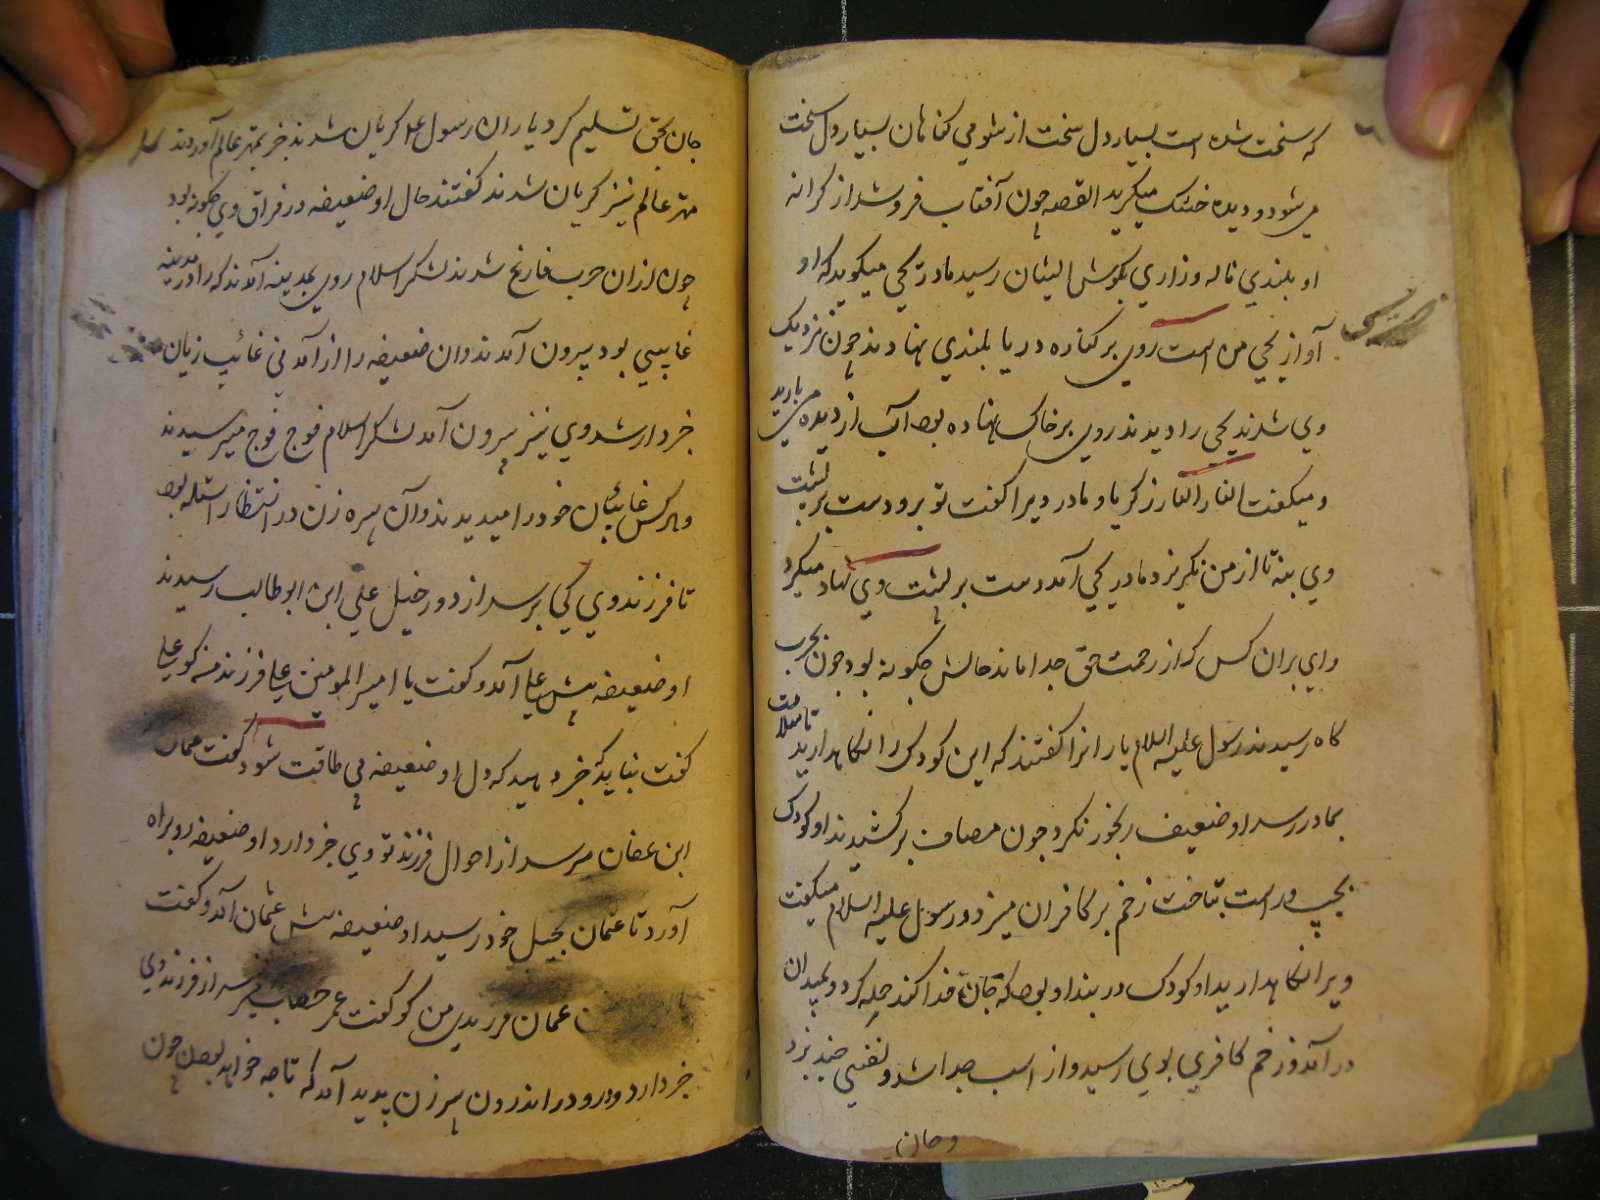 که سخت شده است بسیار دل سخت از شومی کناهان بسیار دل سخت
می شود و دیده خشک میکرید القصه چون آفتاب فرو شد از کرانه
او بلندی ناله و زاری بکوش ایشان رسید مادر یحیی میکوید که او
آواز یحیی من است روی بر کناره دریا بلندی نهادند چون نزدیک
وی شدند یحیی را دیدند روی بر خاک نهاده بود آب از دیده می بارید
و میکفت النار النار زکریا و مادر ویرا کفت تو برو دست بر پشت
وی بنه تا از من نکریزد مادر یحیی آمد دست بر پشت وی نهاد میکرد
وای بران کس که از رحمت حق جدا ماند حالش چکونه بود چون بحرب
کاه رسیدند رسول علیه السلام یارانرا کفتند که این کودک را نکاهدارید تا سلامت
بمادر رسد او ضعیف رنجور نکرد چون مصاف برکشیدند او کودک
بچپ و راست بتاخت زخم بر کافران میزد و رسول علیه السلام میکفت
ویرا نکاهدارید او کودک در بند او بود که جان فدا کند حمله کرد و بمیدان
در آمد و زخم کافری بوی رسید و از اسب جدا شد و نفسی چند بزد
و جان
جان بحق تسلیم کرد یاران رسول علم کریان شدند خبر بمهتر عالم آوردند
مهتر عالم نیز کریان شدند کفتند حال او ضعیفه در فراق وی چکونه بود
چون ازان حرب فارغ شدند لشکر اسلام روی بمدینه آمدند که را در مدینه
غایبی بود بیرون آمدند وان ضعیفه را از آمدنی غائب زیان
خبردار شد وی نیز بیرون آمد لشکر اسلام فوج فوج میرسیدند
و هرکس غائبان خود را میدیدند و آن پیره زن در انتظار استاده بود
تا فرزند وی کی برسد از دور خیل علی ابن ابو طالب رسیدند
او ضعیفه پیش علی آمد و کفت یا امیر المومنین علی فرزند منه کو علی
کفت نباید که خبر دهید که دل او ضعیفه بی طاقت شود کفت عثمان
ابن عفان میرسد از احوال فرزند تو وی خبر دارد او ضعیفه رو براه
آورد تا عثمان بخیل خود رسید او ضعیفه پیش عثمان آمد و کفت
عثمان فرزندی من کو کفت عمر خطاب میرسد از فرزند وی
خبر دارد و درد در اندرون پیرزن پدید آمد که تا چه خواهد بودن چون